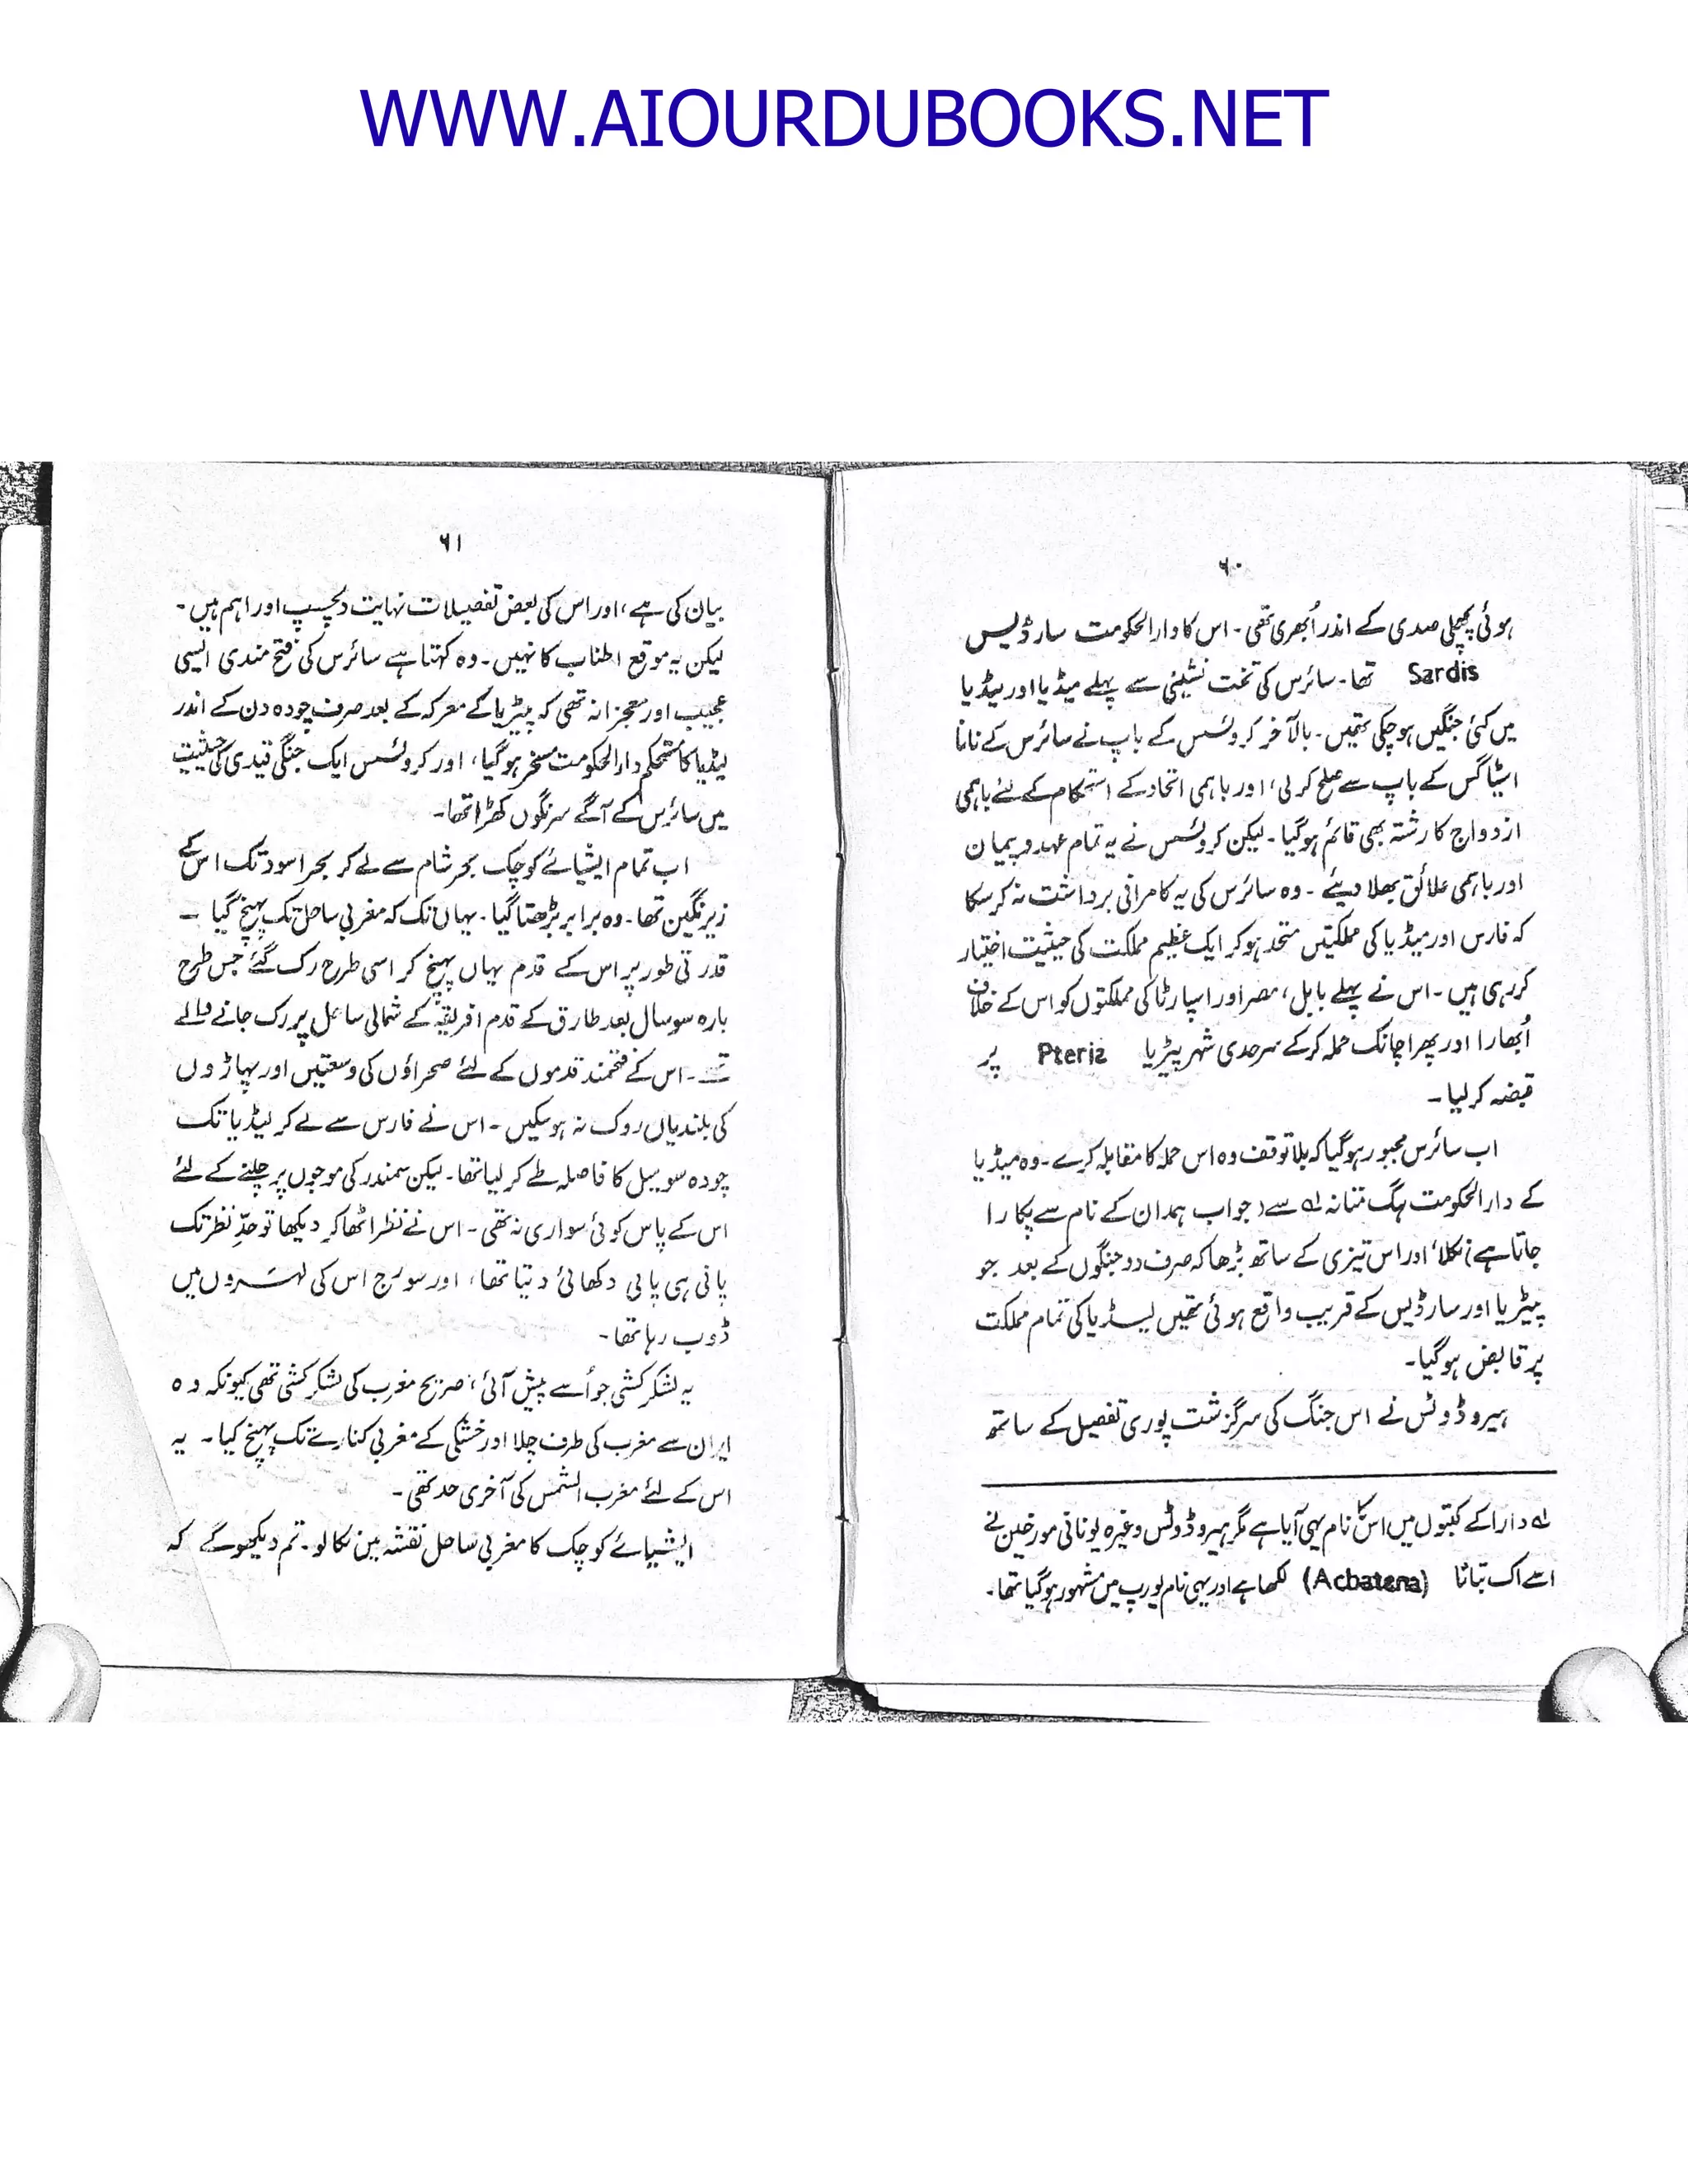 WWW.AIOURDUBOOKS.NET
۶۰
ہوئی پچھلی صدی کے اندر اُبھری تھی۔ اس کا دارالحکومت سارڈیس
Sardis تھا۔ سائرس کی تخت نشینی سے پہلے میڈیا اور لیڈیا
میں کئی جنگیں ہوچکی تھیں۔ بالآخر کروئسس کے باپ نے سائرس کے نانا
اسٹیاگس کے باپ سے صلح کرلی، اور باہمی اتحاد کے استحکام کے لئے باہمی
ازدواج کا رشتہ بھی قائم ہوگیا۔ لیکن کروئسس نے یہ تمام عہد و پیمان
اور باہمی علائق بھلا دیئے۔ وہ سائرس کی یہ کامرانی برداشت نہ کرسکا
کہ فارس اور میڈیا کی مملکتیں متحد ہوکر ایک عظیم مملکت کی حیثیت اختیار
کر رہی ہیں۔ اس نے پہلے بابل، مصر اور اسپارٹا کی مملکتوں کو اس کے خلاف
اُبھارا اور پھر اچانک حملہ کرکے سرحدی شہر پیٹریا Pteria پر
قبضہ کرلیا۔
اب سائرس مجبور ہوگیا کہ بلا توقف وہ اس حملہ کا مقابلہ کرے۔ وہ میڈیا
کے دارالحکومت ہگ متانہ لہ سے (جو اب ہمدان کے نام سے پکارا
جاتا ہے) نکلا، اور اس تیزی کے ساتھ بڑھا کہ صرف دو جنگوں کے بعد جو
پیٹریا اور سارڈیس کے قریب واقع ہوئی تھیں لیڈیا کی تمام مملکت
پر قابض ہوگیا۔
ہیروڈوٹس نے اس جنگ کی سرگزشت پوری تفصیل کے ساتھ
لہ دارا کے کتبوں میں اس کا نام یہی آیا ہے مگر ہیروڈوٹس وغیرہ یونانی مورخین نے
اسے اک بتانا (Acbatena) لکھا ہے اور یہی نام یورپ میں مشہور ہوگیا تھا۔
۶۱
بیان کی ہے، اور اس کی بعض تفصیلات نہایت دلچسپ اور اہم ہیں۔
لیکن یہ موقع اطناب کا نہیں۔ وہ کہتا ہے سائرس کی فتح مندی ایسی
عجیب اور معجزانہ تھی کہ پیٹریا کے معرکہ کے بعد صرف چودہ دن کے اندر
لیڈیا کا مستحکم دارالحکومت مسخر ہوگیا، اور کروئسس ایک جنگی قیدی کی حیثیت
میں سائرس کے آگے سرنگوں کھڑا تھا۔
اب تمام ایشیائے کوچک بحر شام سے لے کر بحر اسود تک اس کے
زیر نگین تھا۔ وہ برابر بڑھتا گیا۔ یہاں تک کہ مغربی ساحل تک پہنچ گیا۔
قدرتی طور پر اس کے قدم یہاں پہنچ کر اسی طرح رک گئے جس طرح
بارہ سو سال بعد طارق کے قدم افریقہ کے شمالی ساحل پر رک جانے والے
تھے۔ اس کے فتحمند قدموں کے لئے صحراؤں کی وسعتیں اور پہاڑوں
کی بلندیاں روک نہ ہوسکیں۔ اس نے فارس سے لے کر لیڈیا تک
چودہ سو میل کا فاصلہ طے کرلیا تھا۔ لیکن سمندر کی موجوں پر چلنے کے لئے
اس کے پاس کوئی سواری نہ تھی۔ اس نے نظر اٹھا کر دیکھا تو حدِّ نظر تک
پانی ہی پانی دکھائی دیتا تھا، اور سورج اس کی لہروں میں
ڈوب رہا تھا۔
یہ لشکر کشی جو اُسے پیش آئی، صریح مغرب کی لشکر کشی تھی کیونکہ وہ
ایران سے مغرب کی طرف چلا اور خشکی کے مغربی کنارے تک پہنچ گیا۔ یہ
اس کے لئے مغرب الشمس کی آخری حد تھی۔
ایشیائے کوچک کا مغربی ساحل نقشہ میں نکالو۔ تم دیکھوگے کہ